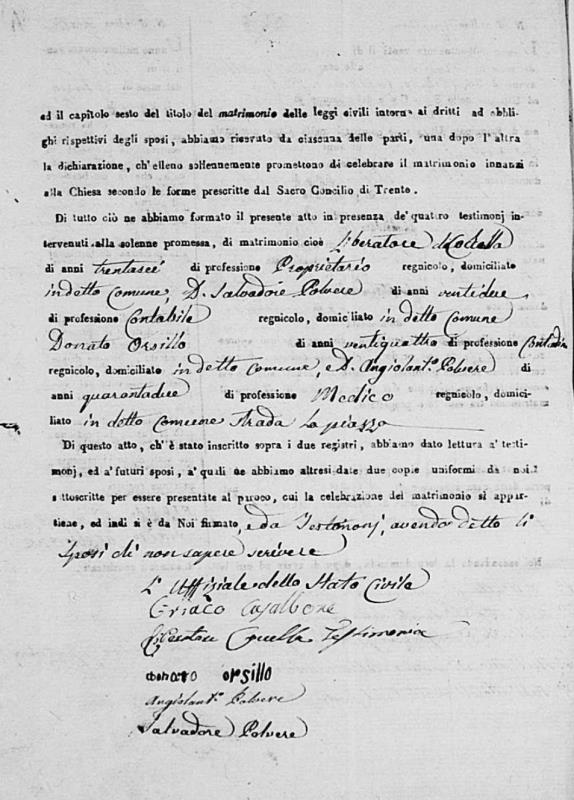 ed il capitolo sesto del titolo del matrimonio delle leggi civili intorno ai dritti ad obbli-
ghi rispettivi degli sposi, abbiamo ricevuto da ciascuna delle parti, una dopo l'altra
la dichiarazione, ch'elleno sollennemente promettono di celebrare il matrimonio innanzi
alla Chiesa secondo le forme prescritte dal Sacro Concilio di Trento.
Di tutto ciò ne abbiamo formato il presente atto in presenza de' quattro testimonj in-
tervenuti alla solenne promessa, di matrimonio cioè Liberatore
di anni trentasei di professione Proprietario regnicolo, domiciliato
in detto Comune, D. Salvadore Polvere di anni ventidue
di professione Contabile regnicolo, domiciliato in detto Comune
Donato Orsillo di anni ventiquattro di professione Contadino
regnicolo, domiciliato in detto Comune, e D. Angiolant.º Polvere di
anni quarantadue di professione Medico regnicolo, domici-
liato in detto Comune strada La piazza
Di questo atto, ch'è stato inscritto sopra i due registri, abbiamo dato lettura a' testi-
monj, ed a' futuri sposi, a' quali ne abbiamo altresi date due copie uniformi da noi
sottoscritte per essere presentate al paroco, cui la celebrazione del matrimonio si appar-
tiene, ed indi si è da Noi firmato, e da Testimonj, avendo detto li
sposi di non sapere scrivere
L'Uffiziale dello Stato Civile
Ciriaco Casalbone
Testimonio
donato orsillo
Angiolant.º Polvere
Salvadore Polvere